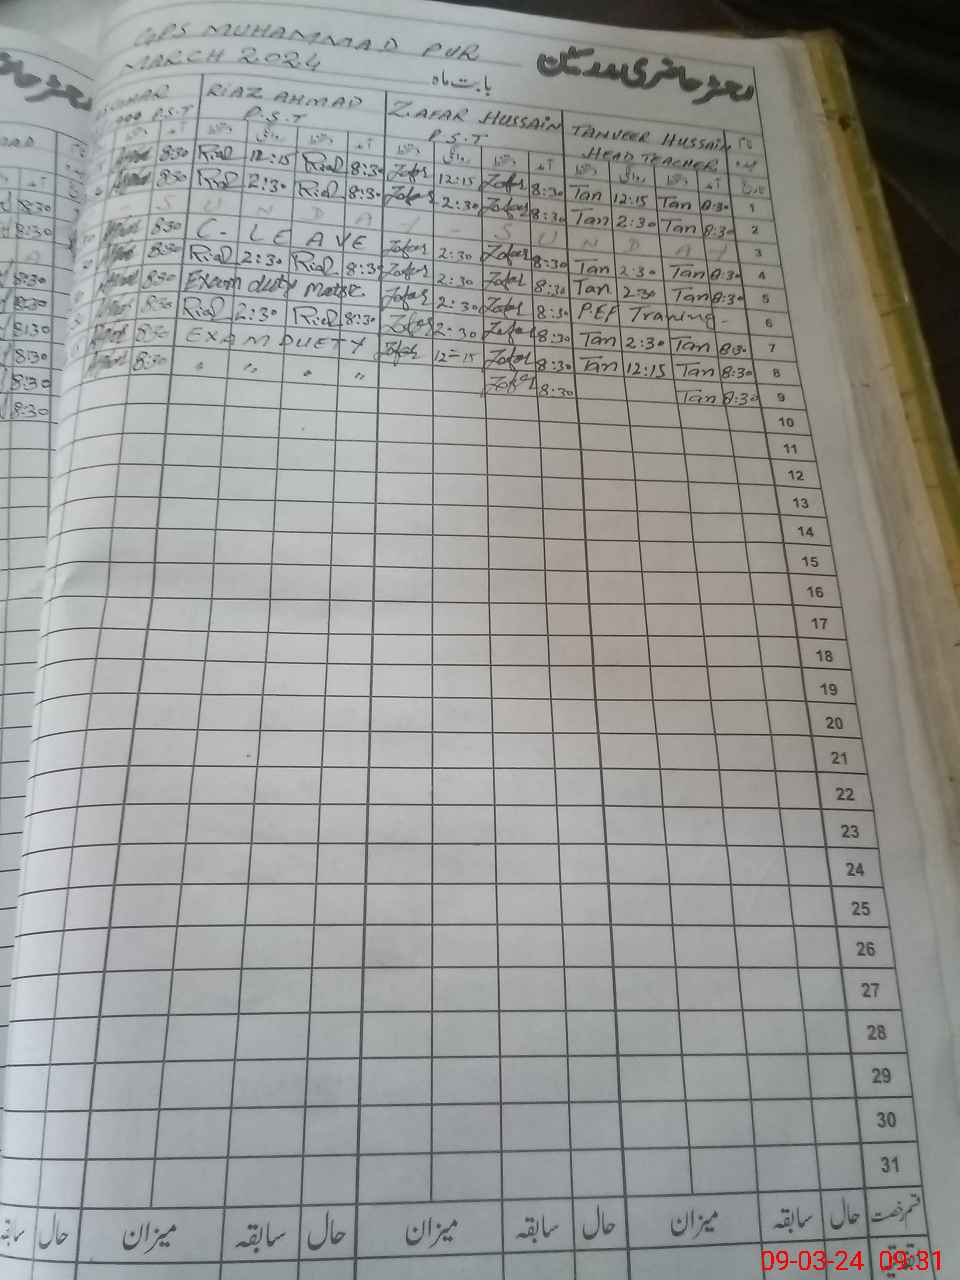 GPS MUHAMMAD PUR
MARCH 2024
بابت ماہ
RIAZ AHMAD
P.S.T
ZAFAR HUSSAIN
P.S.T
TANVEER HUSSAIN
HEAD TEACHER
8:30 Riad 12:15 Riad 8:30 Zafar 12:15 Zafar 8:30 Tan 12:15 Tan 8:30 1
8:30 Riad 2:30 Riad 8:30 Zafar 2:30 Zafar 8:30 Tan 2:30 Tan 8:30 2
S U N D A Y - S U N D A Y 3
8:30 C- LEAVE Zafar 2:30 Zafar 8:30 Tan 2:30 Tan 8:30 4
8:30 Riad 2:30 Riad 8:30 Zafar 2:30 Zafar 8:30 Tan 2:30 Tan 8:30 5
8:30 Exam duty Zafar 2:30 Zafar 8:30 P.EF Traning - 6
8:30 Riad 2:30 Riad 8:30 Zafar 2:30 Zafar 8:30 Tan 2:30 Tan 8:30 7
8:30 EXAM DUETY Zafar 12=15 Zafar 8:30 Tan 12:15 Tan 8:30 8
8:30 " " " " Zafar 8:30 Tan 8:30 9
10
11
12
13
14
15
16
17
18
19
20
21
22
23
24
25
26
27
28
29
30
31
قسم رخصت حال سابقہ میزان حال سابقہ میزان حال سابقہ میزان حال سابقہ
09-03-24 09:31